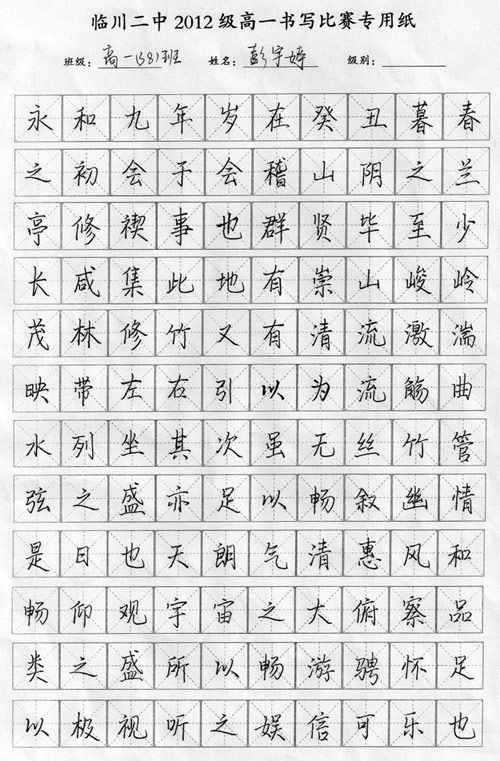 临川二中 2012 级高一书写比赛专用纸
班级：高一(38)班 姓名：彭宇婷 级别：
永和九年岁在癸丑暮春
之初会于会稽山阴之兰
亭修禊事也群贤毕至少
长咸集此地有崇山峻岭
茂林修竹又有清流激湍
映带左右引以为流觞曲
水列坐其次虽无丝竹管
弦之盛亦足以畅叙幽情
是日也天朗气清惠风和
畅仰观宇宙之大俯察品
类之盛所以畅游骋怀足
以极视听之娱信可乐也